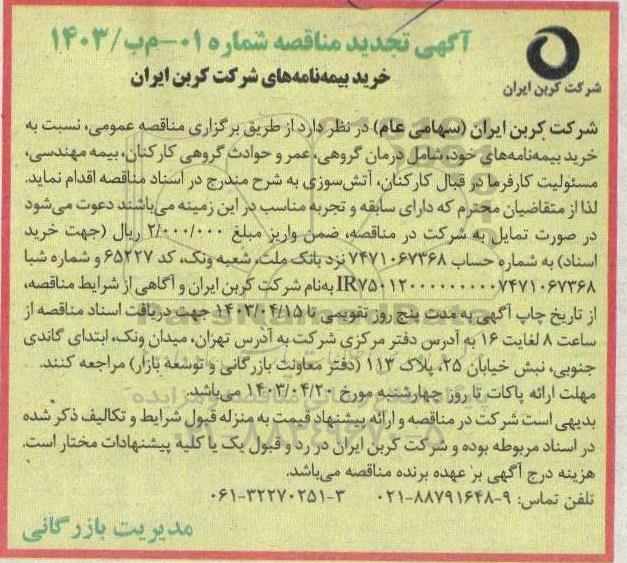 آگهی تجدید مناقصه شماره ۰۱-م‌ب/۱۴۰۳
خرید بیمه‌نامه‌های شرکت کربن ایران
شرکت کربن ایران
شرکت کربن ایران (سهامی عام) در نظر دارد از طریق برگزاری مناقصه عمومی، نسبت به
خرید بیمه‌نامه‌های خود، شامل درمان گروهی، عمر و حوادث گروهی کارکنان، بیمه مهندسی،
مسئولیت کارفرما در قبال کارکنان، آتش‌سوزی به شرح مندرج در اسناد مناقصه اقدام نماید.
لذا از متقاضیان محترم که دارای سابقه و تجربه مناسب در این زمینه می‌باشند دعوت می‌شود
در صورت تمایل به شرکت در مناقصه، ضمن واریز مبلغ ۲/۰۰۰/۰۰۰ ریال (جهت خرید
اسناد) به شماره حساب ۷۴۷۱۰۶۷۳۶۸ نزد بانک ملت، شعبه ونک، کد ۶۵۲۲۷ و شماره شبا
IR۷۵۰۱۲۰۰۰۰۰۰۰۰۰۷۴۷۱۰۶۷۳۶۸ به‌نام شرکت کربن ایران و آگاهی از شرایط مناقصه،
از تاریخ چاپ آگهی به مدت پنج روز تقویمی تا ۱۴۰۳/۰۴/۱۵ جهت دریافت اسناد مناقصه از
ساعت ۸ لغایت ۱۶ به آدرس دفتر مرکزی شرکت به آدرس تهران، میدان ونک، ابتدای گاندی
جنوبی، نبش خیابان ۲۵، پلاک ۱۱۳ (دفتر معاونت بازرگانی و توسعه بازار) مراجعه کنند.
مهلت ارائه پاکات تا روز چهارشنبه مورخ ۱۴۰۳/۰۴/۲۰ می‌باشد.
بدیهی است شرکت در مناقصه و ارائه پیشنهاد قیمت به منزله قبول شرایط و تکالیف ذکر شده
در اسناد مربوطه بوده و شرکت کربن ایران در رد و قبول یک یا کلیه پیشنهادات مختار است.
هزینه درج آگهی بر عهده برنده مناقصه می‌باشد.
تلفن تماس: ۹-۸۸۷۹۱۶۴۸-۰۲۱ ۳-۳۲۲۷۰۲۵۱-۰۶۱
مدیریت بازرگانی